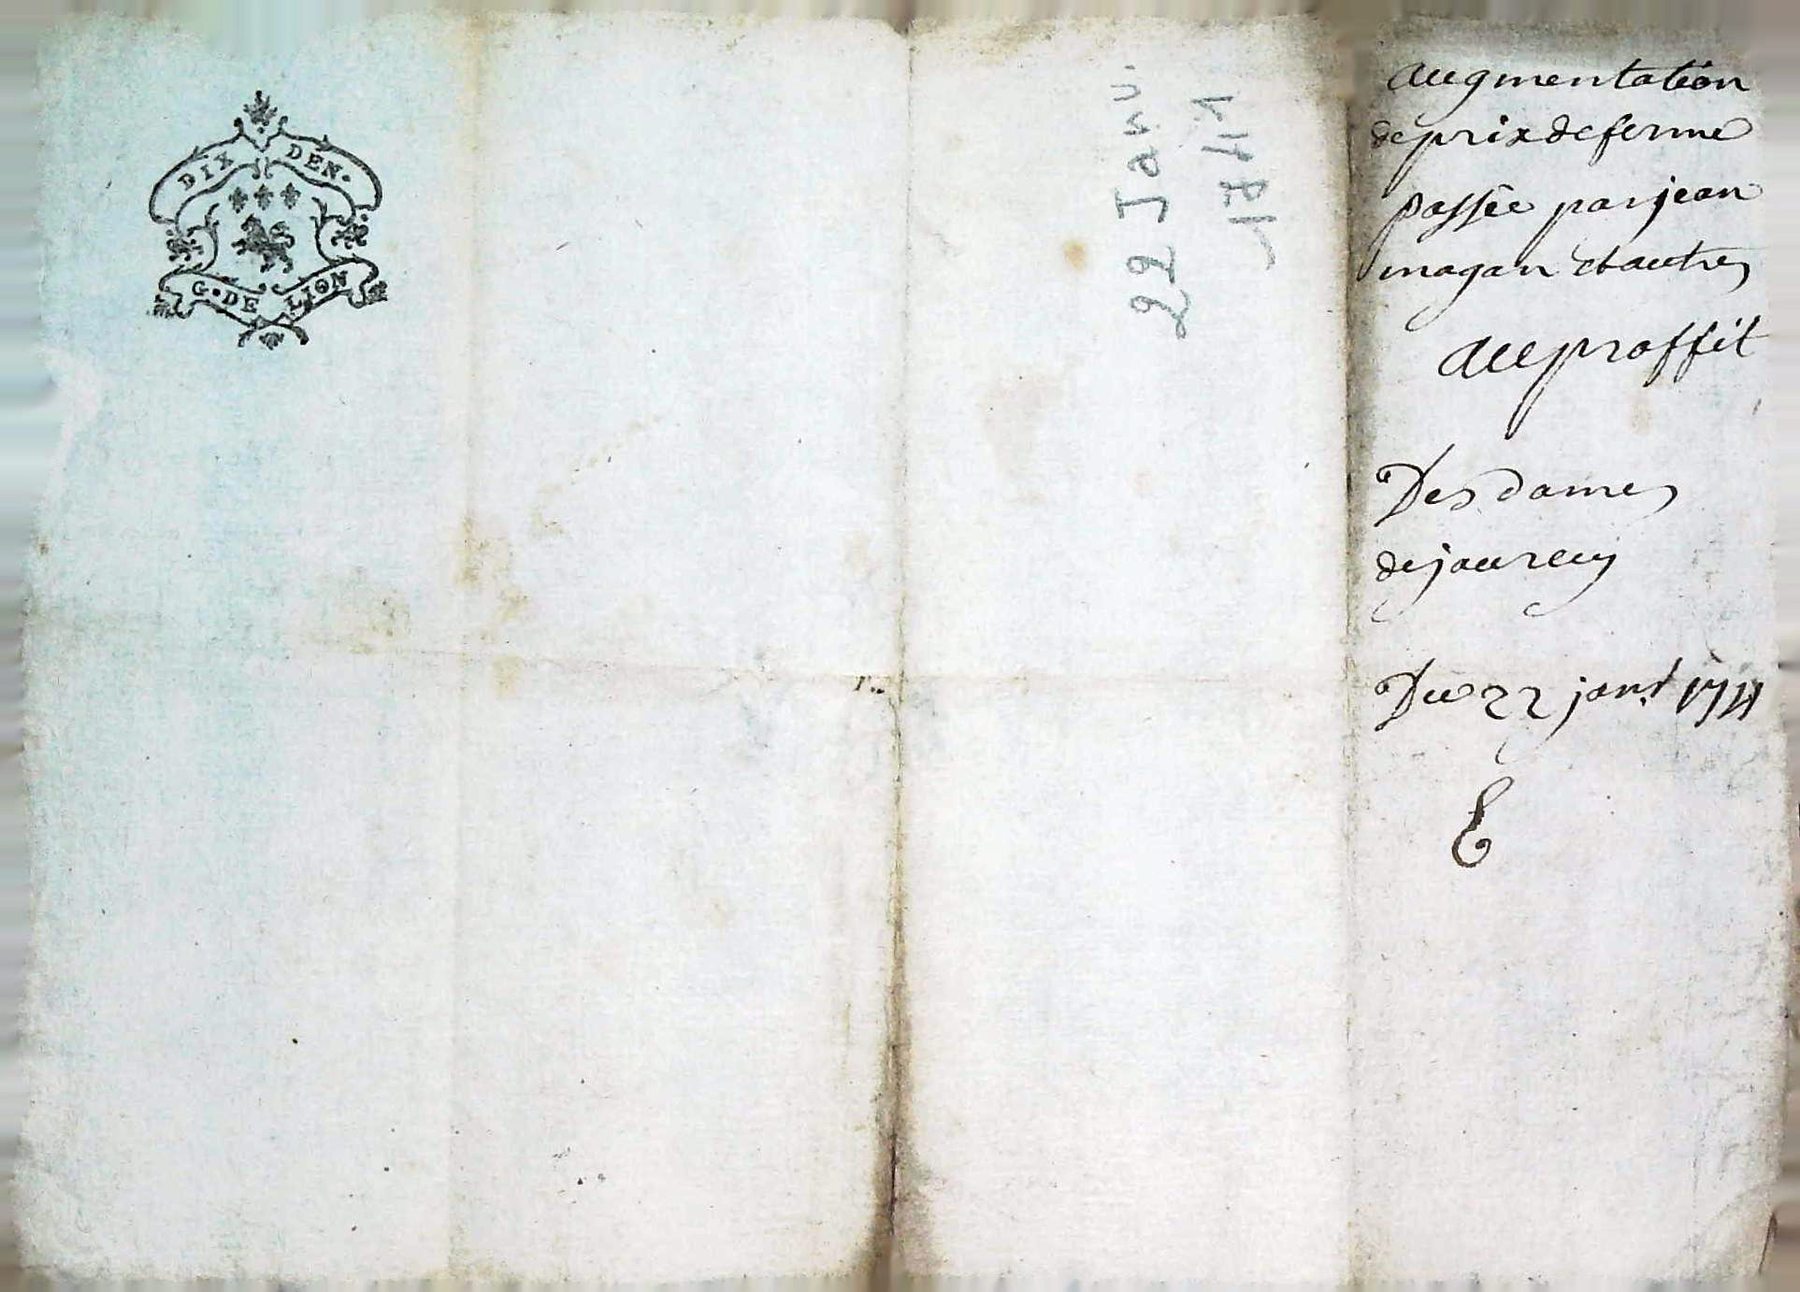 DIX DEN.
G. DE LION
22 Janv.
augmentation
de prix de ferme
passée par jean
magan et autres
au proffit
Des dames
de jourcey
Du 22 janv.
E